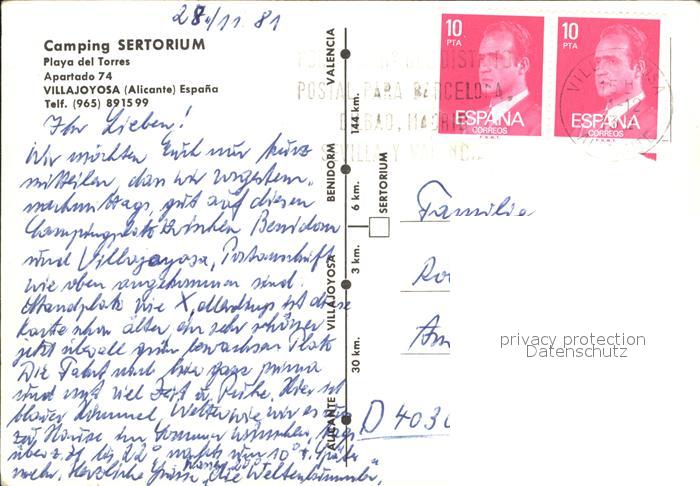 28/11.81
Camping SERTORIUM
Playa del Torres
Apartado 74
VILLAJOYOSA (Alicante) España
Telf. (965) 891599
Ihr Lieben!
Wir möchten Euch nur kurz
mitteilen, dass wir vorgestern
nachmittags, gut auf diesem
Campingplatz zwischen Benidorm
und Villajoyosa, Postanschrift
wie oben angekommen sind.
Standplatz wie X, allerdings ist diese
Karte schon älter ein sehr schöner
jetzt überall grün bewachsen Platz
Die Fahrt war ganz prima
und mit viel Zeit u. Ruhe. Hier ist
blauer Himmel, Wetter wie wir es
zu Hause im Sommer wünschen, tags
über bis 22° nachts um 10°
mehr. Herzliche Grüsse "die Weltenbummler"
VALENCIA
144 km.
BENIDORM
6 km.
SERTORIUM
3 km.
VILLAJOYOSA
30 km.
ALICANTE
10
PTA
ESPAÑA
CORREOS
F.N.M.T.
10
PTA
ESPAÑA
CORREOS
F.N.M.T.
POSTAL PARA BARCELONA,
BILBAO, MADRID
SEVILLA Y VALENCIA
VILLAJOYOSA
Familie
D 4030
privacy protection
Datenschutz